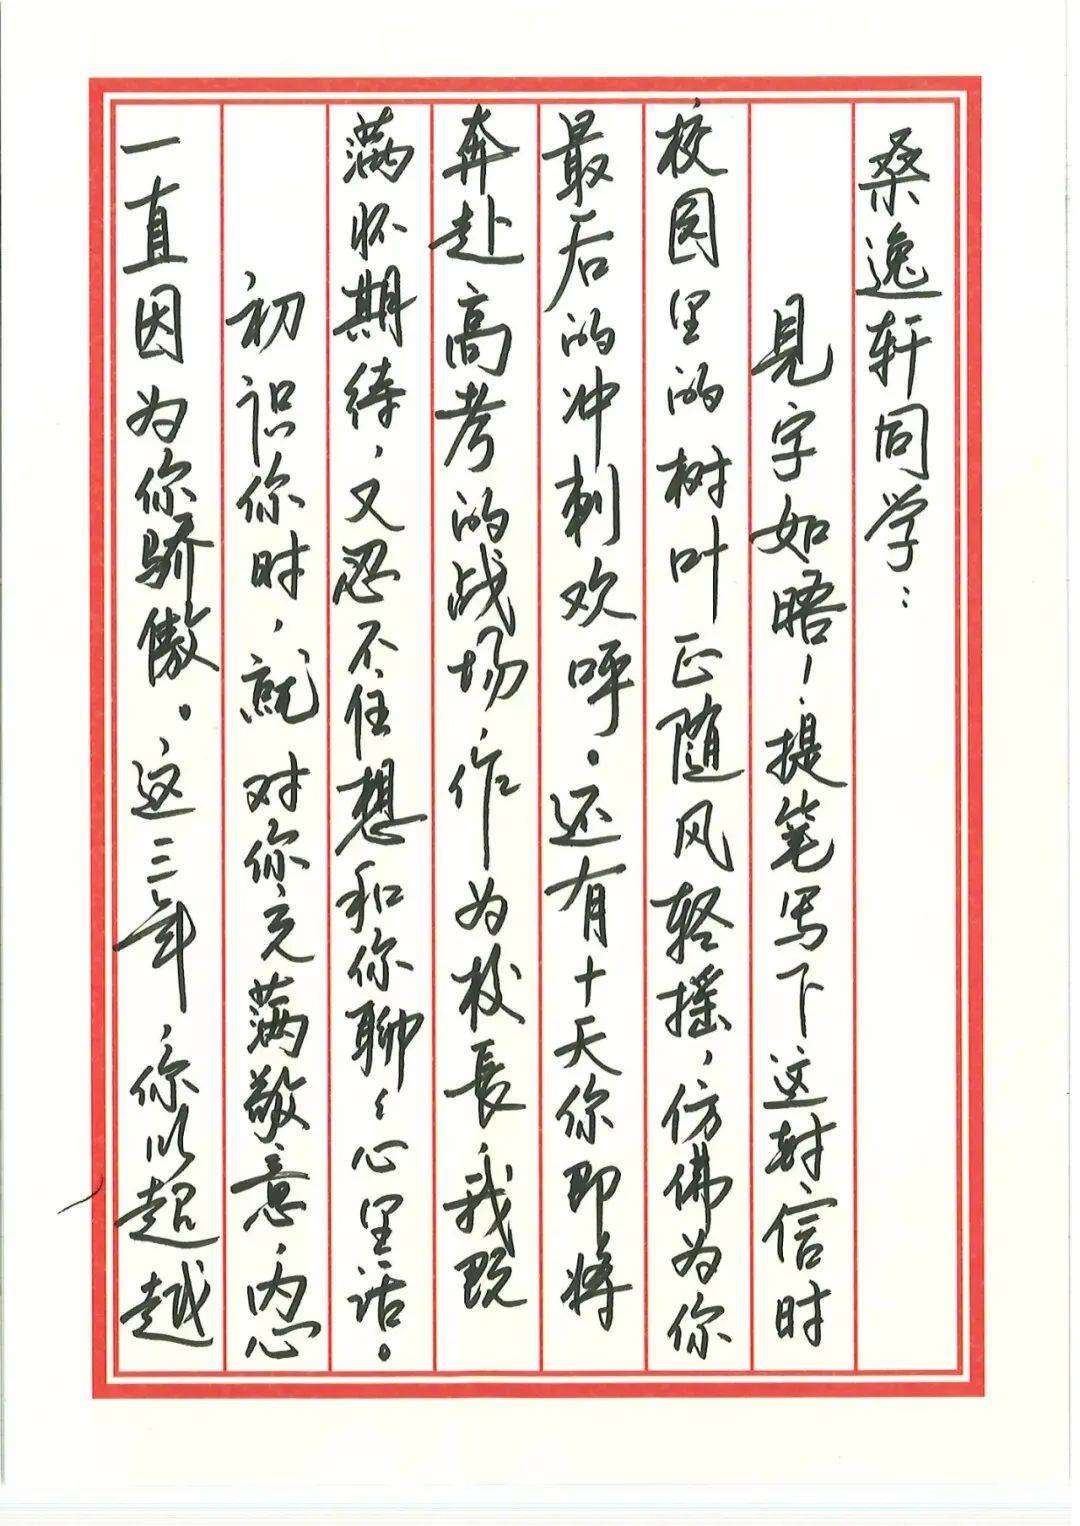 桑逸轩同学：
見字如晤，提笔写下这封信时
校园里的树叶正随风轻摇，仿佛为你
最后的冲刺欢呼。还有十天你即将
奔赴高考的战场，作为校長，我既
满怀期待，又忍不住想和你聊々心里话。
初识你时，就对你充满敬意，内心
一直因为你骄傲。这三年，你以超越